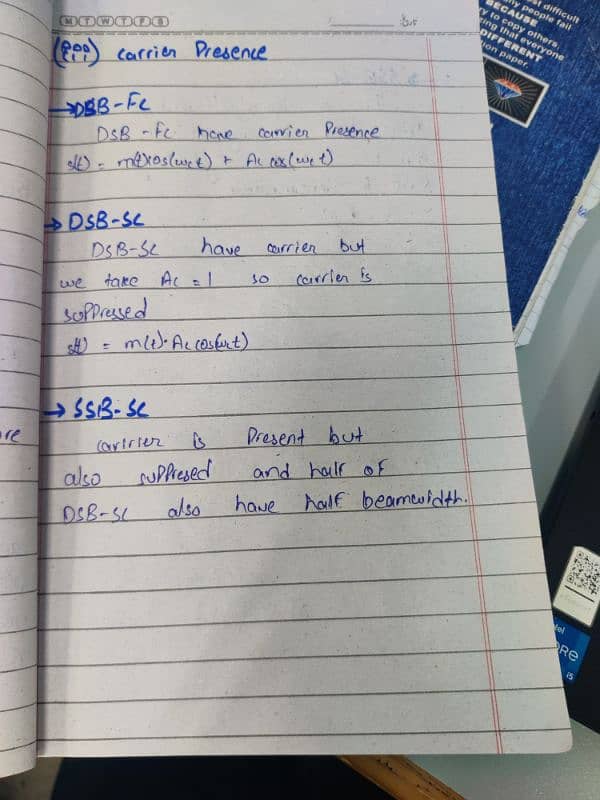 M T W T F S
(iii) carrier Presence
→ DSB-FC
DSB - FC have carrier Presence
s(t) = m(t)cos(ωct) + Ac cos(ωct)
→ DSB-SC
DSB-SC have carrier but
we take Ac = 1 so carrier is
suppressed
s(t) = m(t)·Ac cos(ωct)
→ SSB-SC
caririer is Present but
also suppresed and half of
DSB-SC also have half beamwidth.
st difficult
ny people fail
BECAUSE
ry to copy others
ing that everyone
DIFFERENT
ion paper.
re
tel
ORE
i5